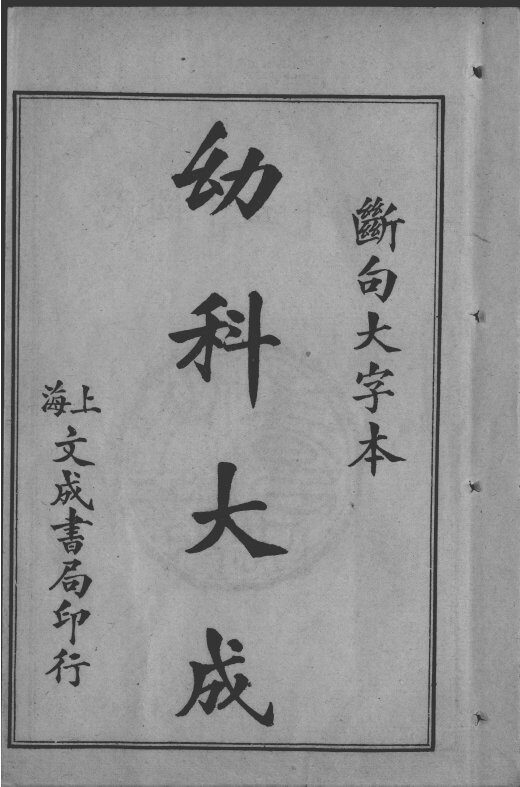 斷句大字本
幼科大成
上海文成書局印行